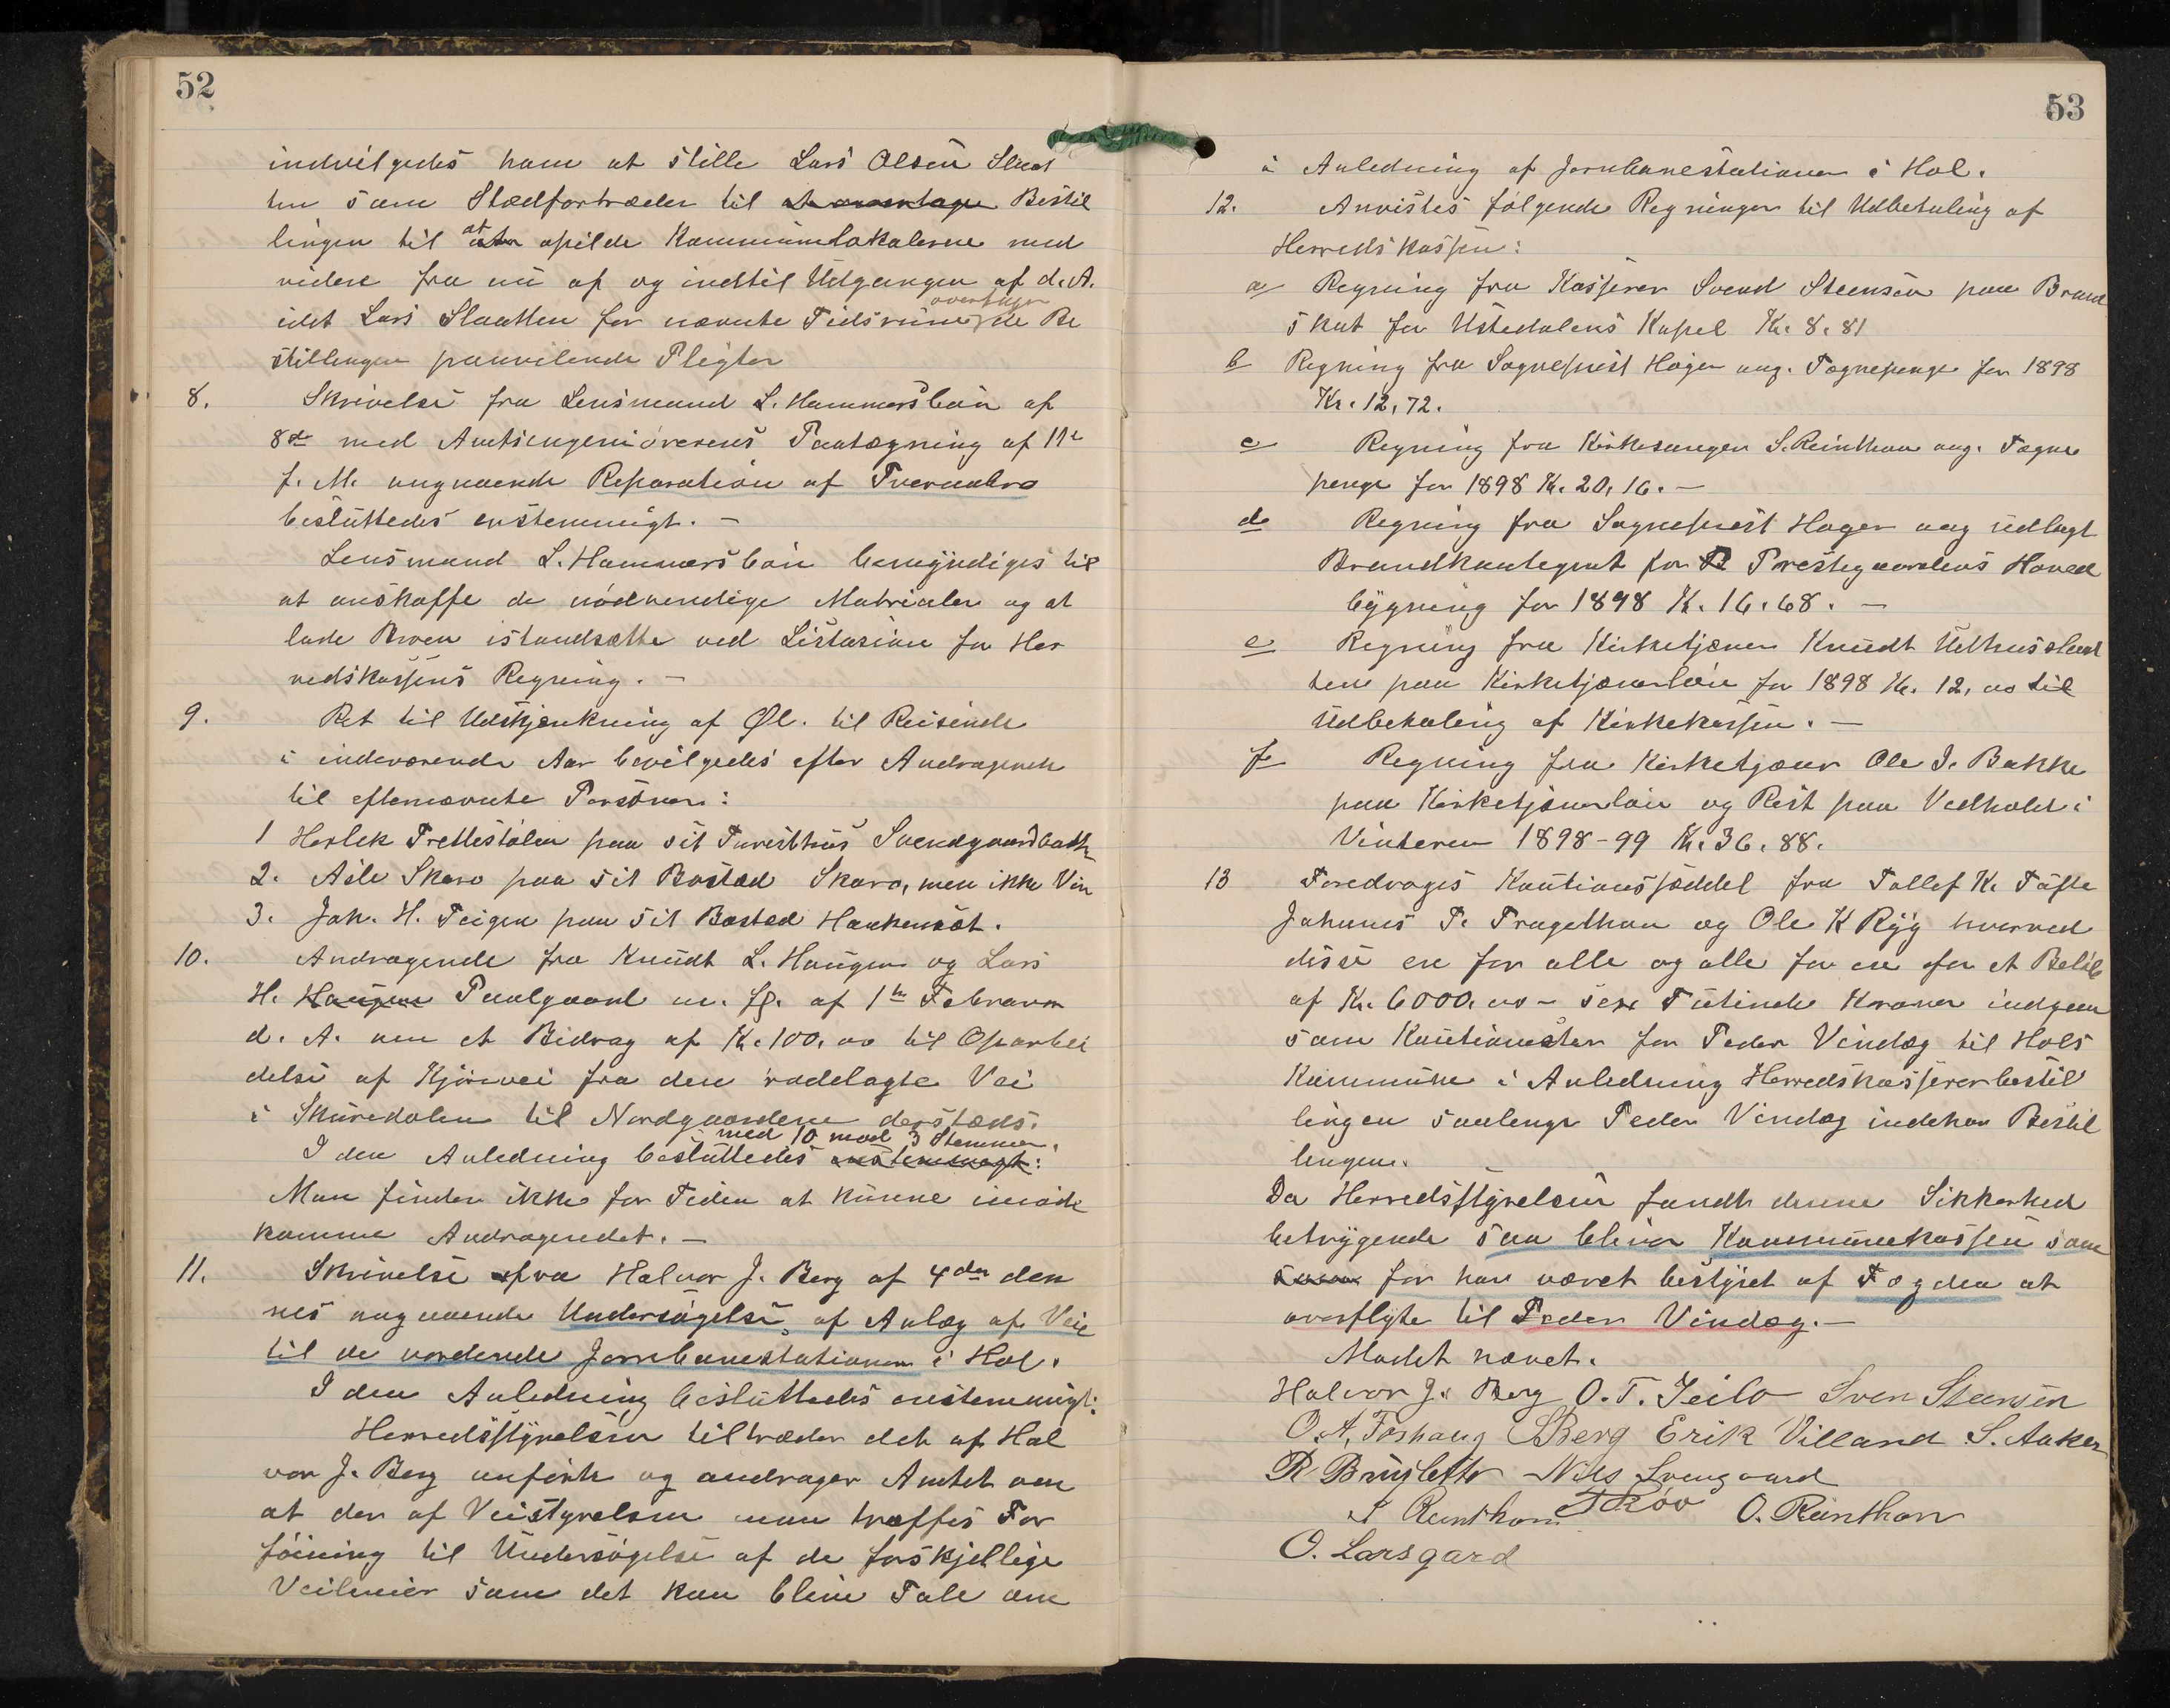 52
indvilgedes ham at stille Lars Olsen Slaat
ten som Stedfortræder til at overtage Bestil
lingen til at opilde Kommunelokalerne med
videre fra nu af og indtil Udgangen af d. A.
idet Lars Slaatten for nævnte Tidsrum overtager de Be
stillingen paahvilende Pligter
8. Skrivelse fra Lensmand L. Hammersbøin af
8de med Amtsingeniørerens Paategning af 11te
f. M. angaaende Reparation af Tveraabro
besluttedes enstemmigt. —
Lensmand L. Hammersbøin bemyndiges til
at anskaffe de nødvendige Materialer og at
lade Broen istandsætte ved Listasion for Her
redskassens Regning. —
9. Ret til Udskjænkning af Øl. til Reisende
i indeværende Aar bevilgedes efter Andragende
til efternævnte Personer:
1 Herlek Trettestølen paa sit Turisthus Svendgaardbotten
2. Asle Skaro paa sit Bosted Skaro, men ikke Vin
3. Joh. H. Teigen paa sit Bosted Haukensæt.
10. Andragende fra Knudt L. Haugen og Lars
H. Haugen Paalgaard m. fl. af 1ste Februar
d. A. om et Bidrag af Kr. 100.00 til Oparbei
delse af Kjørevei fra den rodelagte Vei
i Skuredalen til Nordgaardene dersteds.
med 10 mod 3 Stemmer.
I den Anledning besluttedes enstemmigt:
Man finder ikke for Tiden at kunne imøde
komme Andragendet. —
11. Skrivelse fra Halvor J. Berg af 4de den
nes angaaende Undersøgelse af Anlæg af Vei
til de vordende Jernbanestationer i Hol.
I den Anledning besluttedes enstemmigt:
Herredsstyrelsen tiltræder det af Hal
vor J. Berg anførte og andrager Amtet om
at der af Veistyrelsen maa træffes For
føining til Undersøgelse af de forskjellige
Veilinier som det kan blive Tale om
53
i Anledning af Jernbanestationer i Hol.
12. Anvistes følgende Regninger til Udbetaling af
Herredskassen:
a Regning fra Kasserer Svend Steensen paa Brand
skat for Ustedalens Kapel Kr. 8.81
b Regning fra Sogneprest Hager ang. Sognepenge for 1898
Kr. 12,72.
c Regning fra Kirkesanger S. Reinthon ang. Sogne
penge for 1898 Kr. 20,16. —
d Regning fra Sogneprest Hager ang udlagt
Brandkontegent for Prestegaardens Hoved
bygning for 1898 Kr. 16.68. —
e Regning fra Kirketjener Knudt Uthusslaat
ten paa Kirketjenerløn for 1898 Kr. 12,00 til
Udbetaling af Kirkekassen. —
f Regning fra Kirketjener Ole I. Bakke
paa Kirketjenerløn og Rest paa Vedhold i
Vinteren 1898-99 Kr. 36.88.
13 Foredrages Kautionsseddel fra Tollef K. Tufte
Johannes T. Tragethon og Ole K Ryg hvorved
disse en for alle og alle for en for et Beløb
af Kr. 6000.00 - sex Tutinde Kroner indgaar
som Kautionister for Peder Vindeg til Hols
Kommune i Anledning Herredskassererbestil
lingen saalenge Peder Vindeg indehar Bestil
lingen.
Da Herredsstyrelsen fandt denne Sikkerhed
betryggende saa bliver Kommunekassen som
som før har været bestyret af Fogden at
overflytte til Peder Vindeg. —
Mødet hævet.
Halvor J. Berg O. T. Jeilo Sven Steensen
O. A. Foshaug S Berg Erik Villand S. Aaker
R Brusletto Nils Svengaard
S Reinthon T Røo O. Reinthon
O. Larsgard